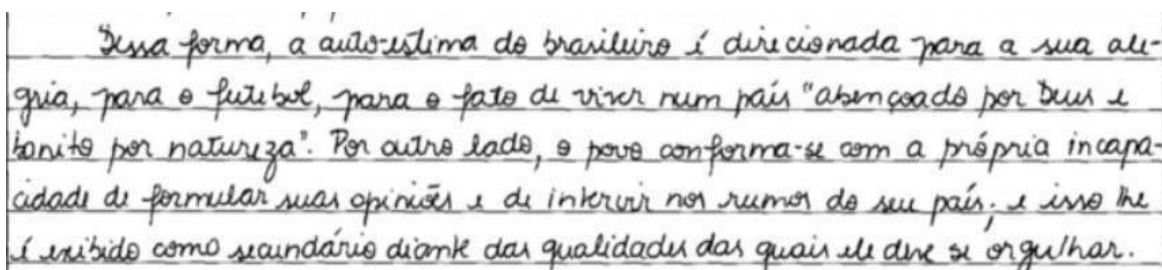 Dessa forma, a auto-estima do brasileiro é direcionada para a sua ale-
gria, para o futebol, para o fato de viver num país "abençoado por Deus e
bonito por natureza". Por outro lado, o povo conforma-se com a própria incapa-
cidade de formular suas opiniões e de intervir nos rumos do seu país; e isso lhe
é exibido como secundário diante das qualidades das quais ele deve se orgulhar.